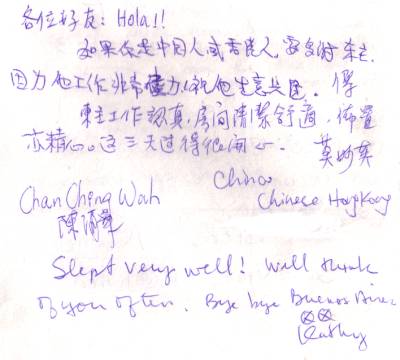 各位好友：Hola!!
如果你是中国人或香港人，要支持 东主，
因为他工作非常 力，祝他生意兴隆。
东主工作认真，房间清洁舒适，佈置
亦精心。这三天过得很開心。
China
Chan Ching Wah Chinese HongKong
陳清華
Slept very well! Will think
of you often. Bye bye Buenos Aires
Kathy